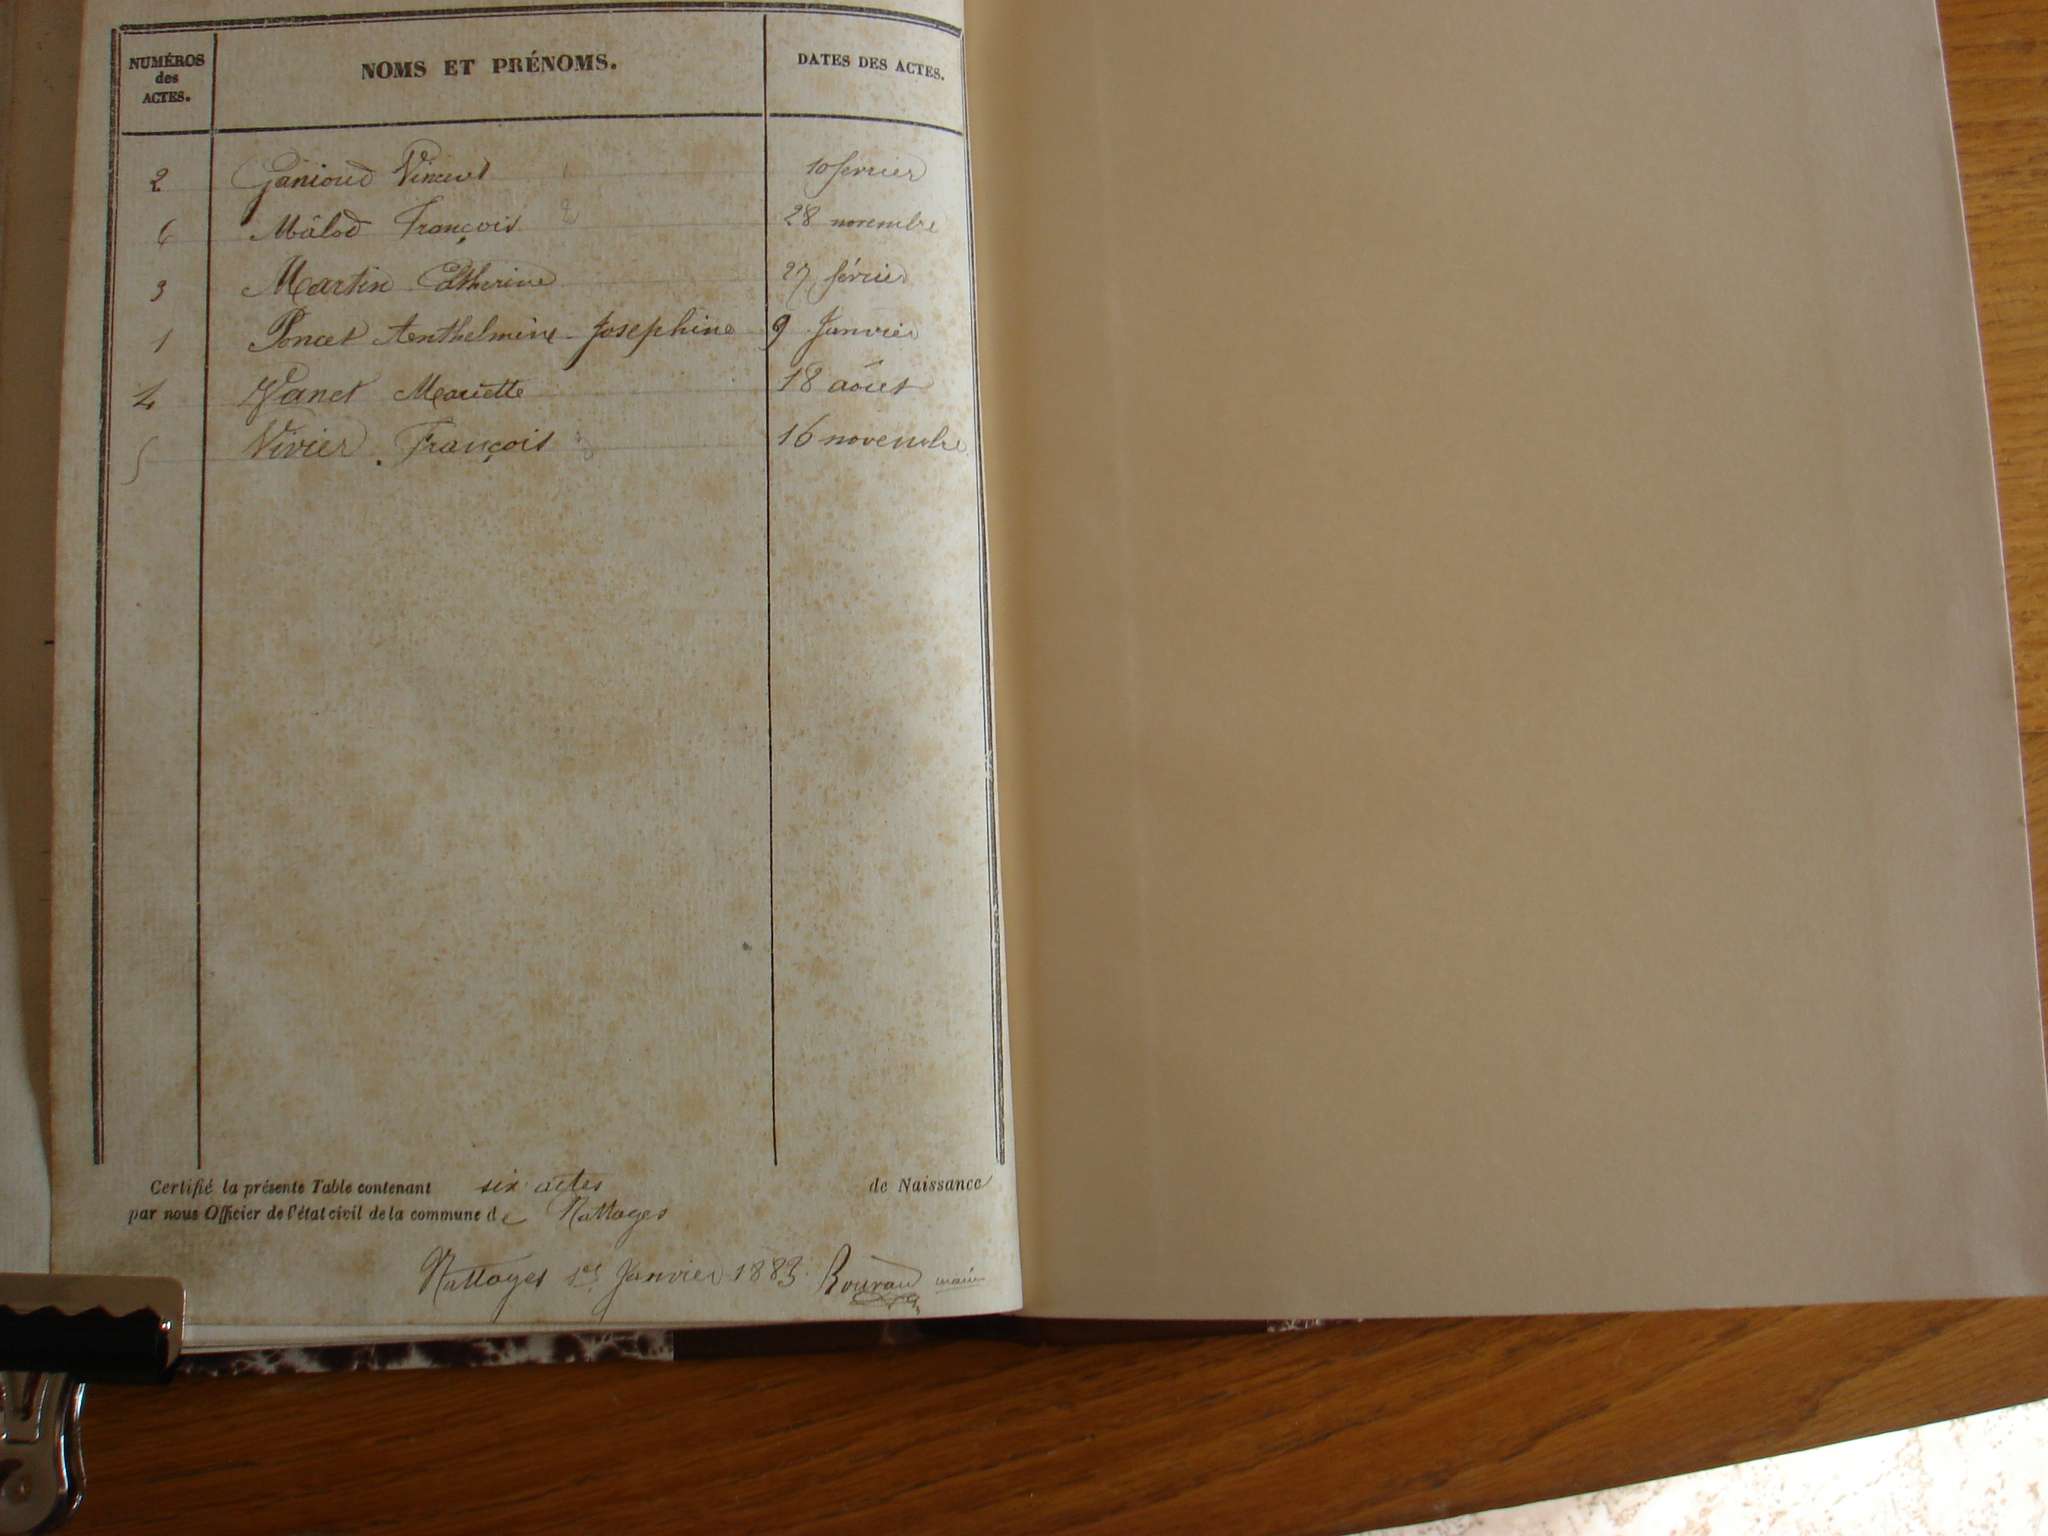 NUMÉROS des ACTES. NOMS ET PRÉNOMS. DATES DES ACTES.
2 Ganioud Vincent 1 10 fevrier
6 Mâlod François 2 28 novembre
3 Martin Catherine 27 février
1 Poncet Anthelmine Josephine 9 Janvier
4 Vanet Mariette 18 août
5 Vivier François 3 16 novembre
Certifié la présente Table contenant six actes de Naissance
par nous Officier de l'état civil de la commune de Nattages
Nattages 1er Janvier 1883 maire